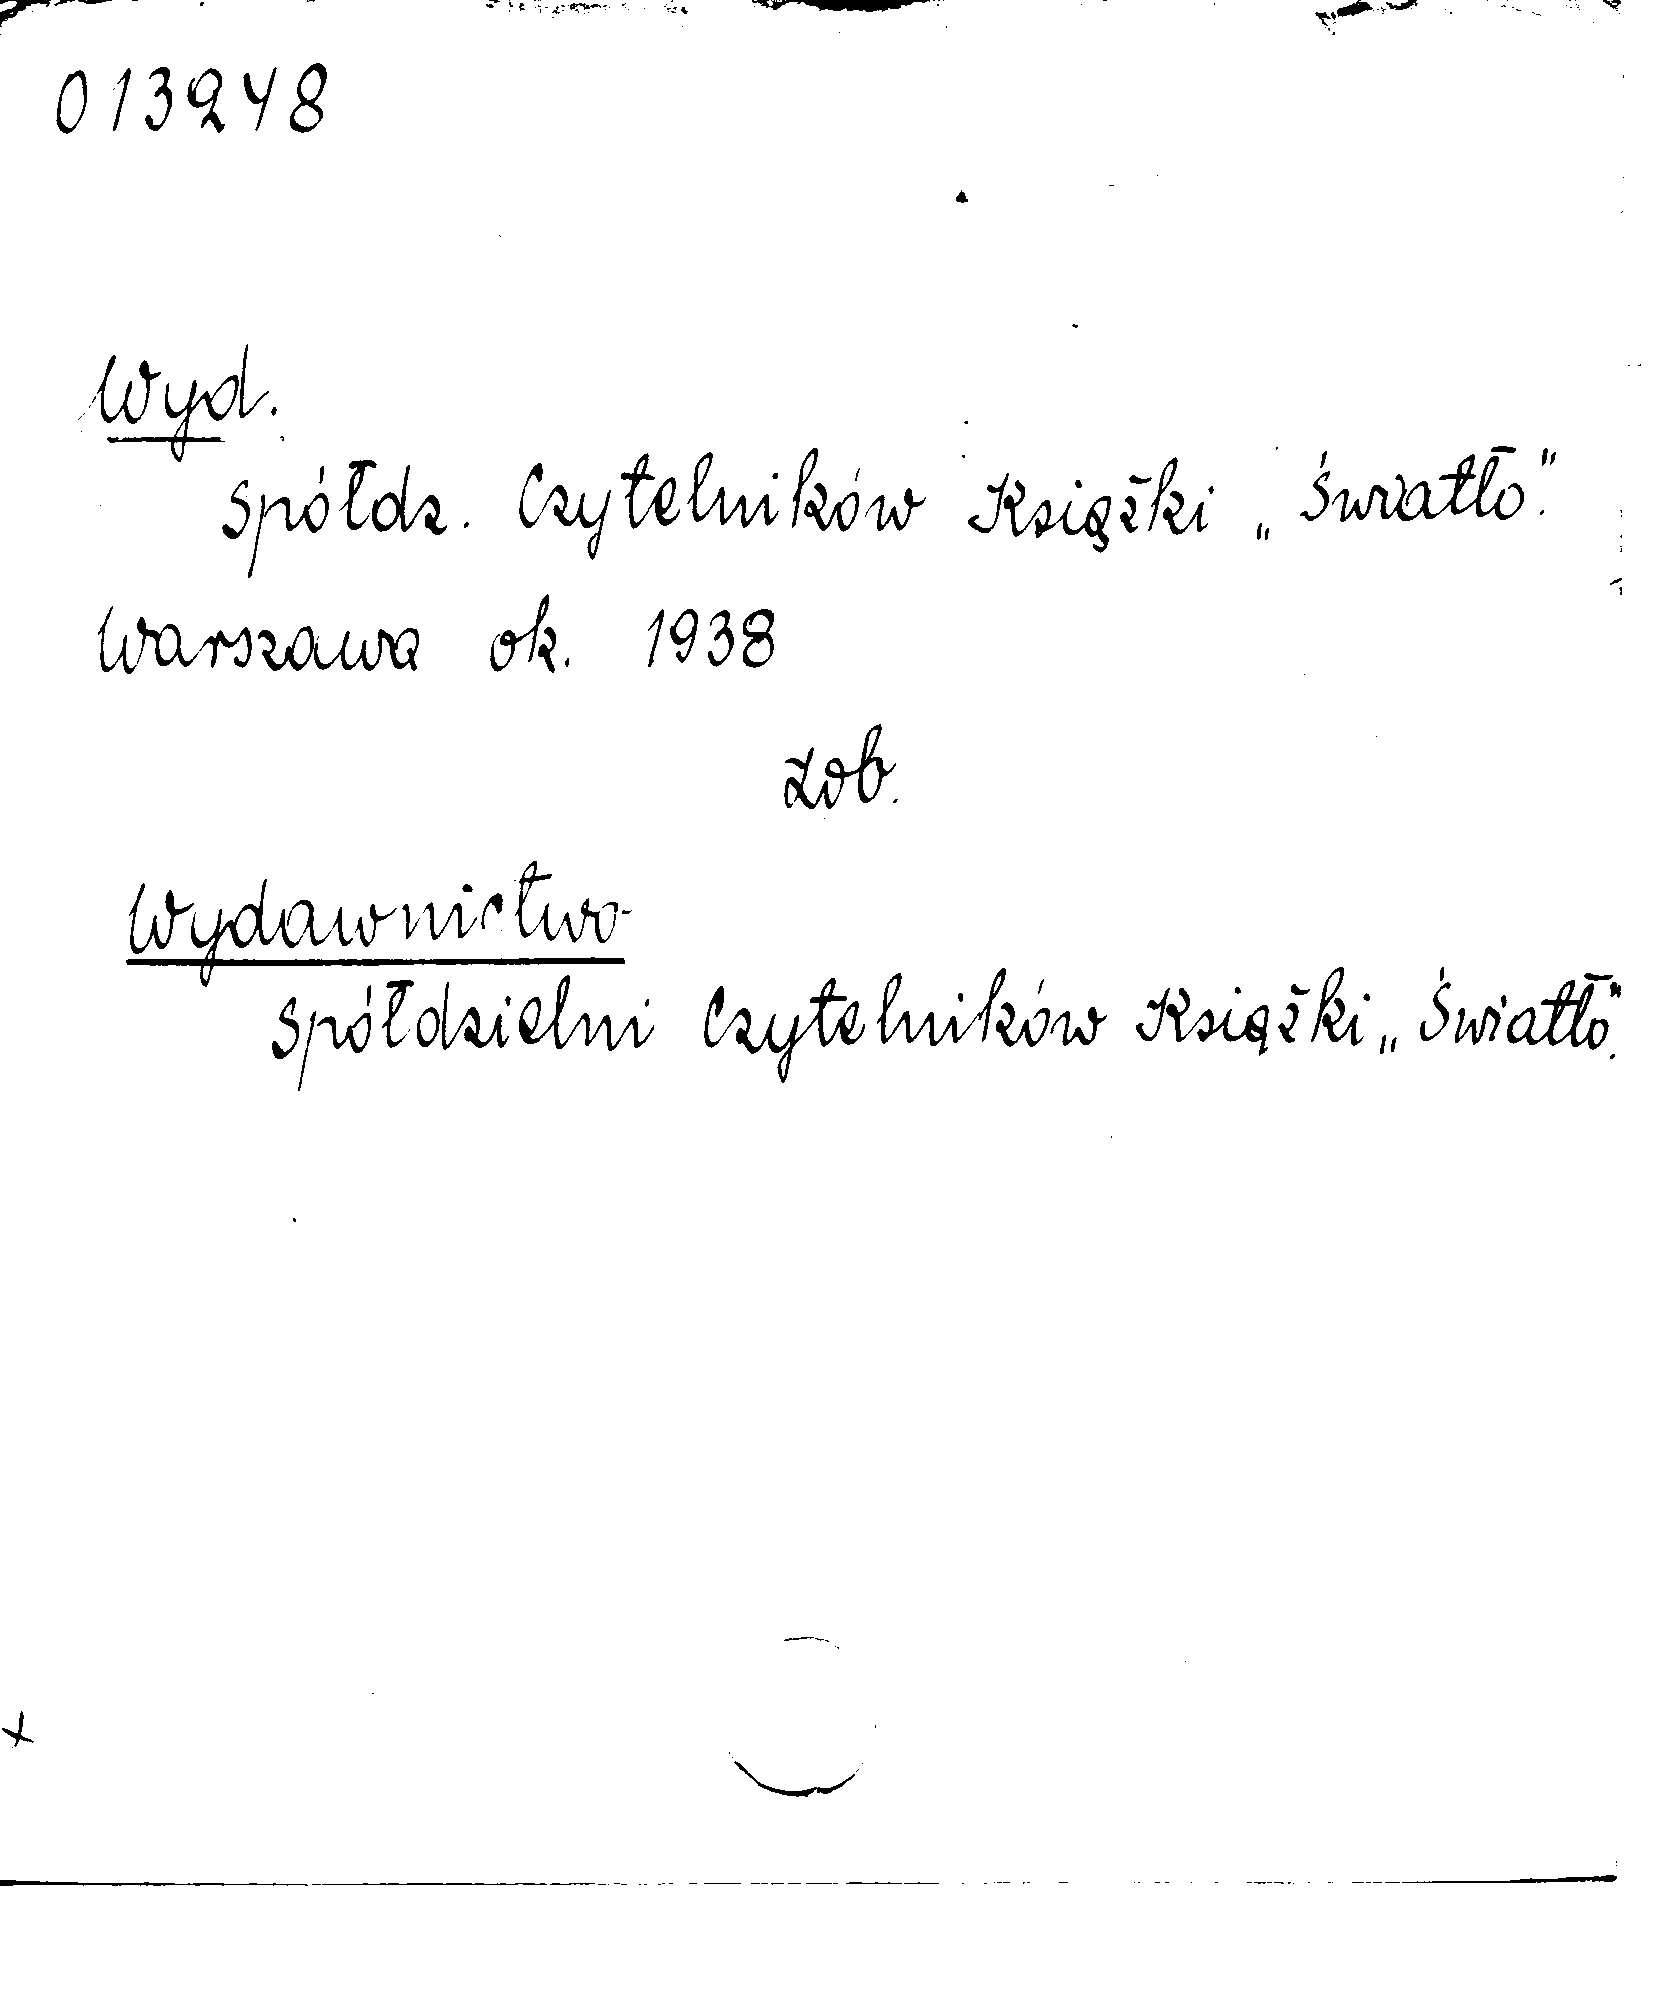 013248
Wyd.
Spółdz. Czytelników Książki „Światło".
Warszawa ok. 1938
Zob.
Wydawnictwo
Spółdzielni Czytelników Książki „Światło".
x